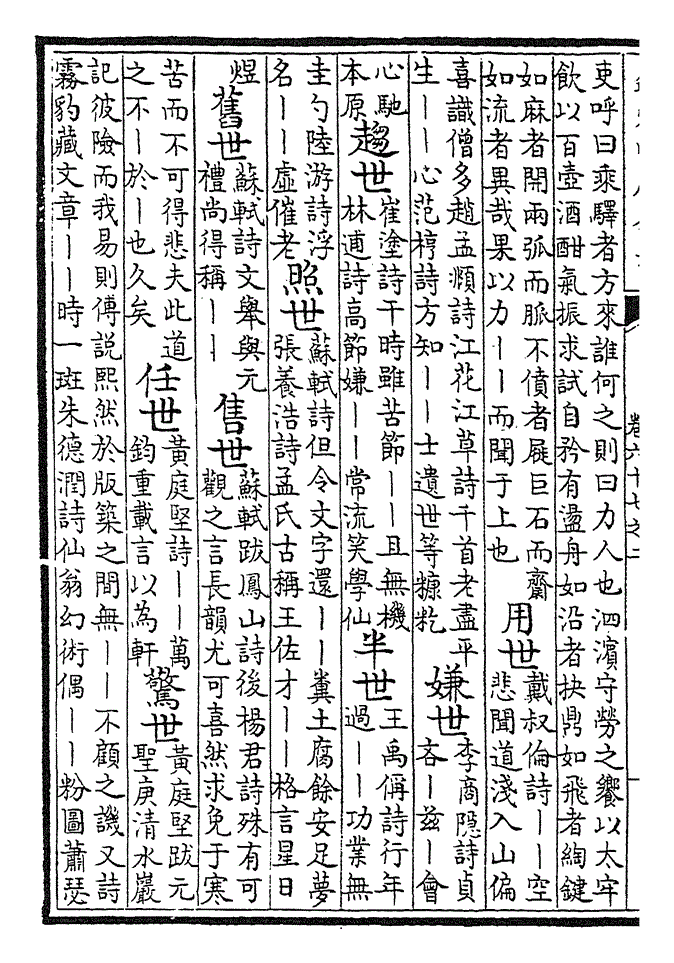 卷六十七之二
吏呼曰乘驛者方來誰何之則曰力人也泗濱守勞之饗以太牢
飲以百壺酒酣氣振求試自矜有盪舟如沿者抉鼎如飛者綯鍵
如麻者開兩弧而脈不僨者屐巨石而齋
如流者異哉果以力｜｜而聞于上也
用世
戴叔倫詩｜｜空
悲聞道淺入山偏
喜識僧多趙孟頫詩江花江草詩千首老盡平
生｜｜心范梈詩方知｜｜士遺世等糠籺
嫌世
李商隱詩貞
吝｜茲｜會
心馳
本原
趨世
崔塗詩干時雖苦節｜｜且無機
林逋詩高節嫌｜｜常流笑學仙
半世
王禹偁詩行年
過｜｜功業無
圭勺陸游詩浮
名｜｜虛催老
照世
蘇軾詩但令文字還｜｜糞土腐餘安足夢
張養浩詩孟氏古稱王佐才｜｜格言星日
煜
舊世
蘇軾詩文舉與元
禮尚得稱｜｜
售世
蘇軾跋鳳山詩後楊君詩殊有可
觀之言長韻尤可喜然求免于寒
苦而不可得悲夫此道
之不｜於｜也久矣
任世
黃庭堅詩｜｜萬
鈞重載言以為軒
驚世
黃庭堅跋元
聖庚清水巖
記彼險而我易則傅說熙然於版築之間無｜｜不顧之譏又詩
霧豹藏文章｜｜時一斑朱德潤詩仙翁幻術偶｜｜粉圖蕭瑟